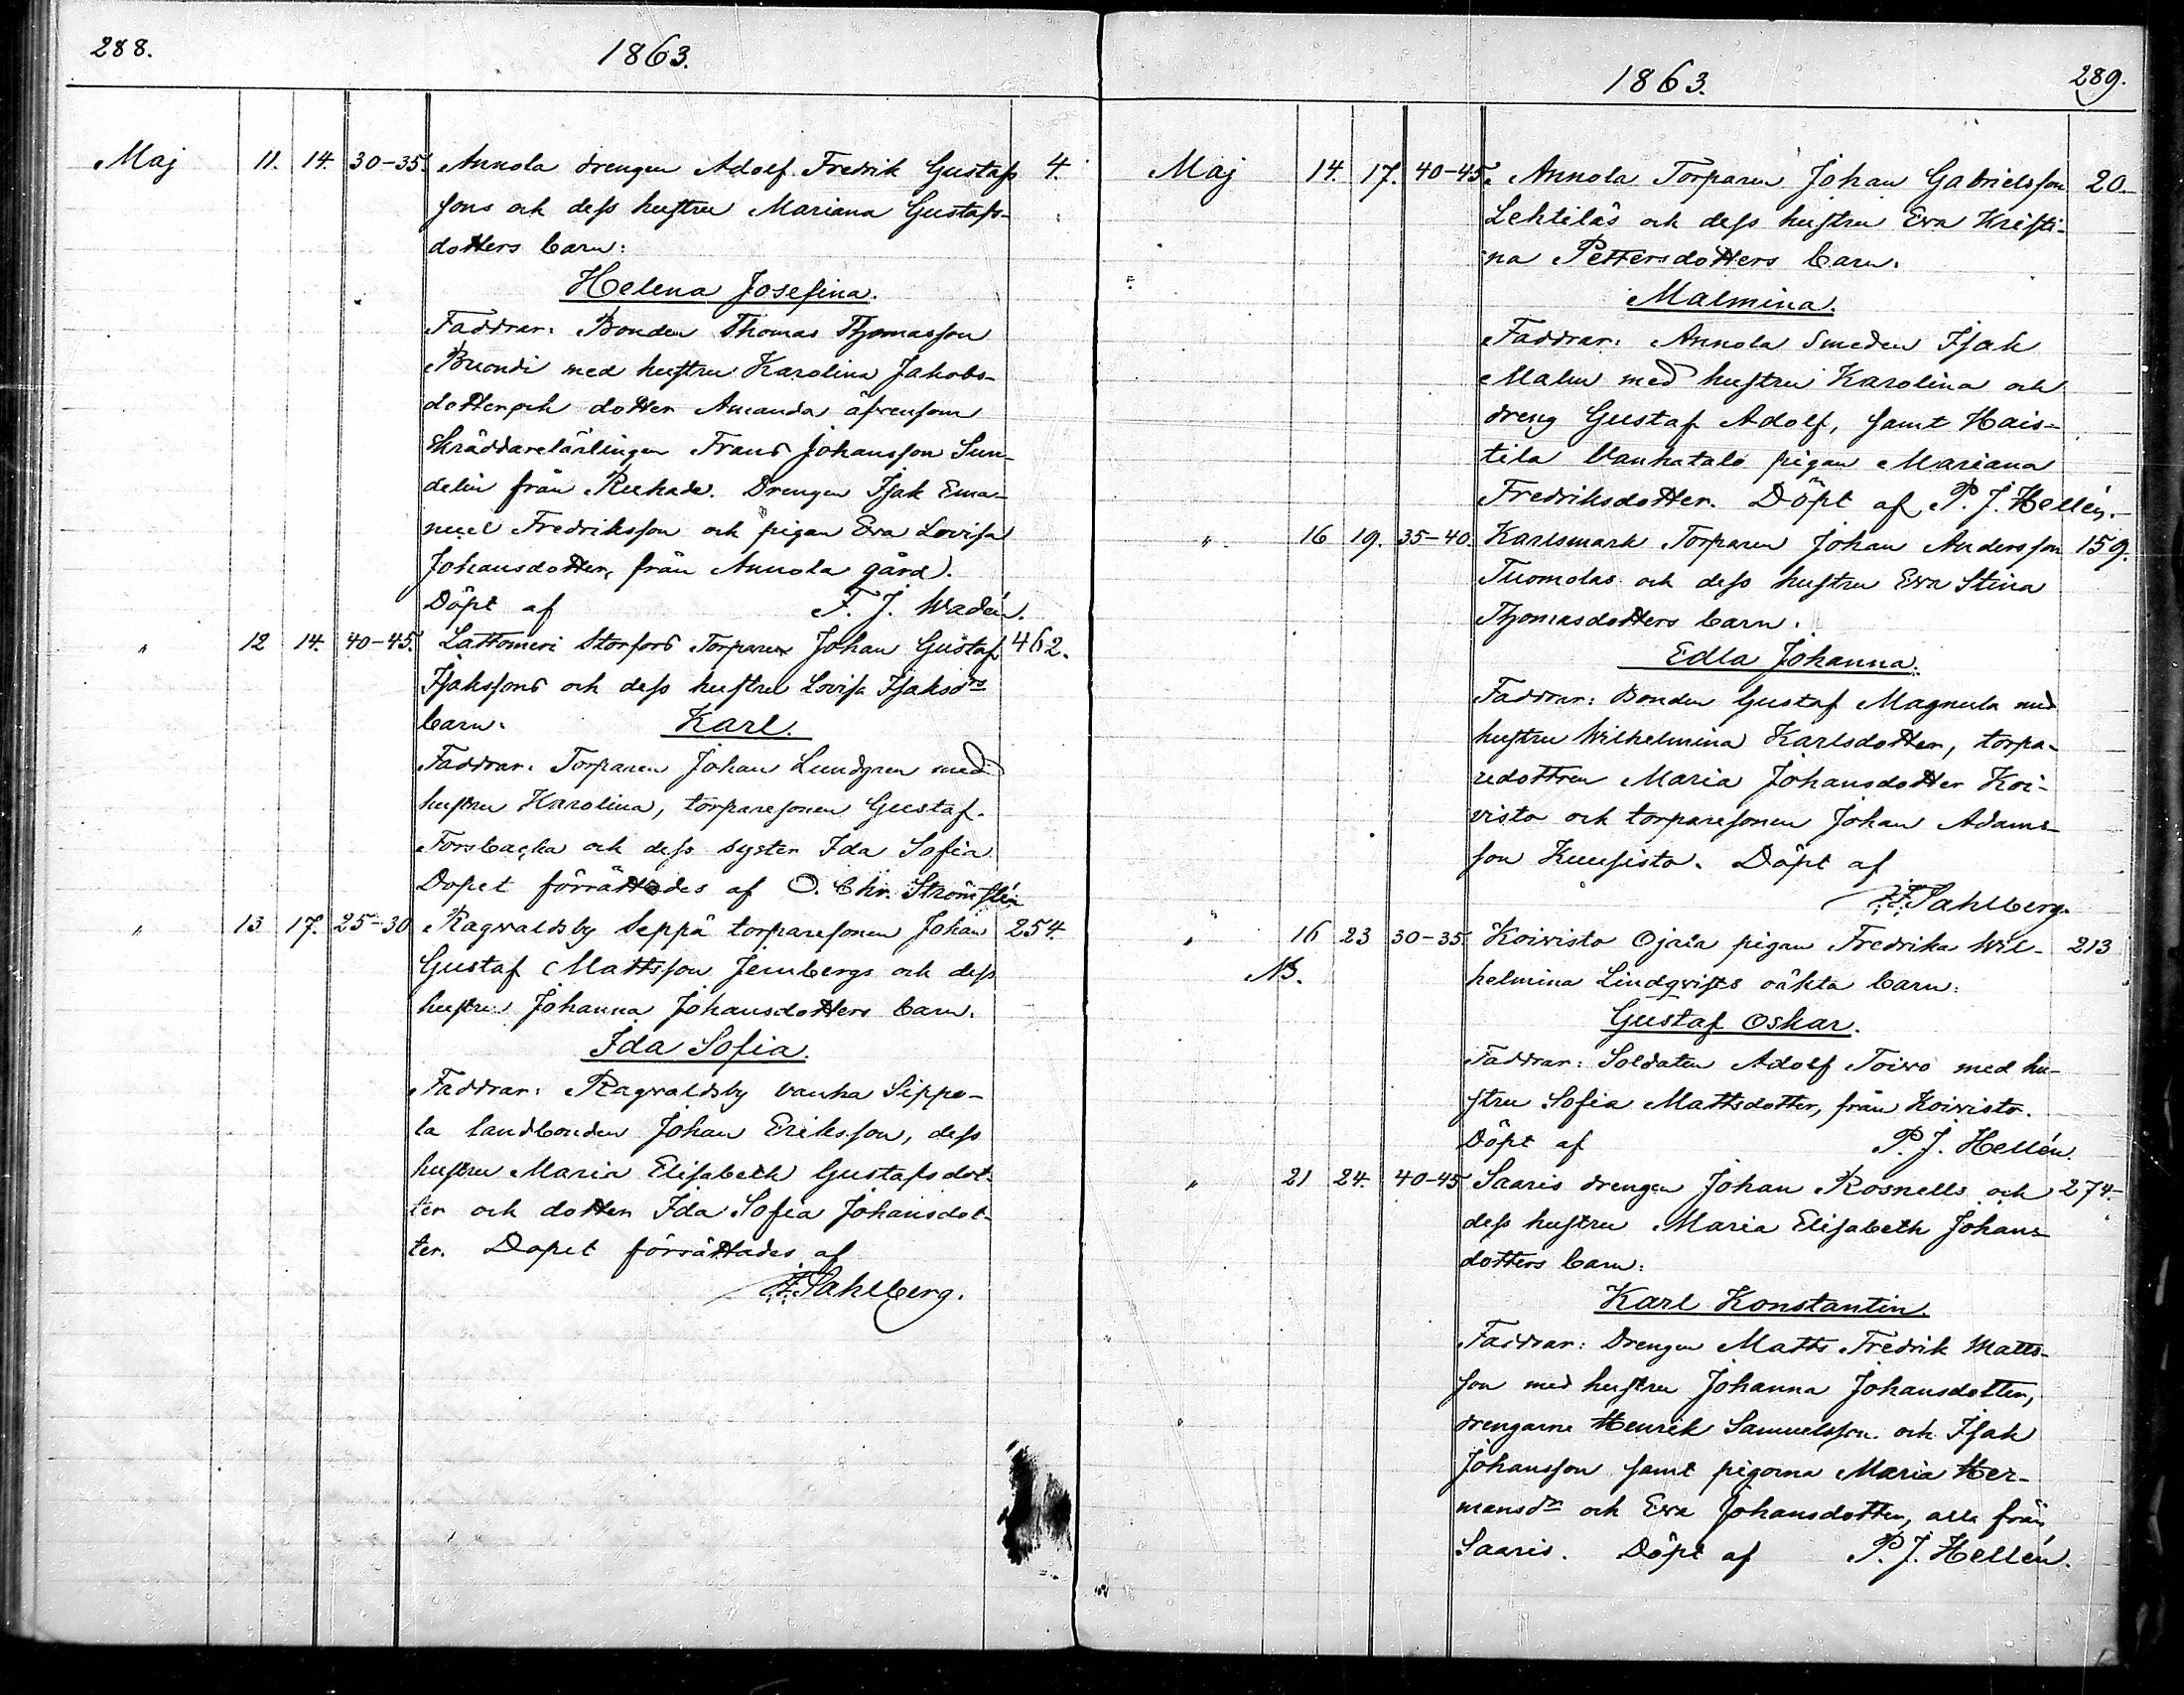 288.
1863.
Maj 11. 14. 30-35. Annola drengen Adolf Fredrik Gustafs 4.
sons och dess hustru Mariana Gustafs-
dotters barn:
Helena Josefina.
Faddrar: Bonden Thomas Thomasson
med hustru Karolina Jakobs-
dotter och dotter Amanda äfvensom
Skräddarelärlingen Frans Johansson Sun-
delin från Drengen Isak Ema-
nuel Fredriksson och pigan Eva Lovisa
Johansdotter, från Annola gård.
Döpt af F. J. Wadén.
" 12 14. 40-45. Lattomeri Storfors Torparen Johan Gustaf 462.
Isakssons och dess hustru Lovisa Isaksdrs
barn. Karl.
Faddrar. Torparen Johan Lundgren med
hustru Karolina, torparesonen Gustaf
Forsbacka och dess syster Ida Sofia
Dopet förrättades af O. Chr. Strömstén
" 13 17. 25-30 Ragvaldsby Seppä torparesonen Johan 254.
Gustaf Mattsson Jernbergs och dess
hustru Johanna Johansdotters barn.
Ida Sofia.
Faddrar: Ragvaldsby Vanha Sippo-
la landbonden Johan Eriksson, dess
hustru Maria Elisabeth Gustafsdot-
ter och dotter Ida Sofia Johansdot-
ter. Dopet förrättades af
F. Sahlberg.
1863.
289.
Maj 14. 17. 40-45. Annola Torparen Johan Gabrielsson 20.
Lehtiläs och dess hustru Eva Kristi-
na Pettersdotters barn.
Malmina.
Faddrar: Annola Smeden Isak
Malm med hustru Karolina och
dreng Gustaf Adolf, samt Hais-
tila Vanhatalo pigan Mariana
Fredriksdotter. Döpt af P. J. Hellén.
" 16 19. 35-40. Karlsmark Torparen Johan Andersson 159.
Tuomolas och dess hustru Eva Stina
Thomasdotters barn.
Edla Johanna.
Faddrar: Bonden Gustaf Magnula med
hustru Wilhelmina Karlsdotter, torpa-
redottren Maria Johansdotter Koi-
visto och torparesonen Johan Adams-
son Kuusisto. Döpt af
F. Sahlberg.
" 16 23 30-35. Koivisto Ojala pigan Fredrika Wil- 213
NB. helmina Lindqvists oäkta barn:
Gustaf Oskar.
Faddrar: Soldaten Adolf Toivo med hu-
stru Sofia Mattsdotter, från Koivisto.
Döpt af P. J. Hellén.
" 21 24. 40-45 Saaris drengen Johan Rosnells och 274.
dess hustru Maria Elisabeth Johans-
dotters barn:
Karl Konstantin.
Faddrar: Drengen Matts Fredrik Matts-
son med hustru Johanna Johansdotter,
drengarne Henrik Samuelsson och Isak
Johansson samt pigorna Maria Her-
mansdr och Eva Johansdotter, alla från
Saaris. Döpt af P. J. Hellén.